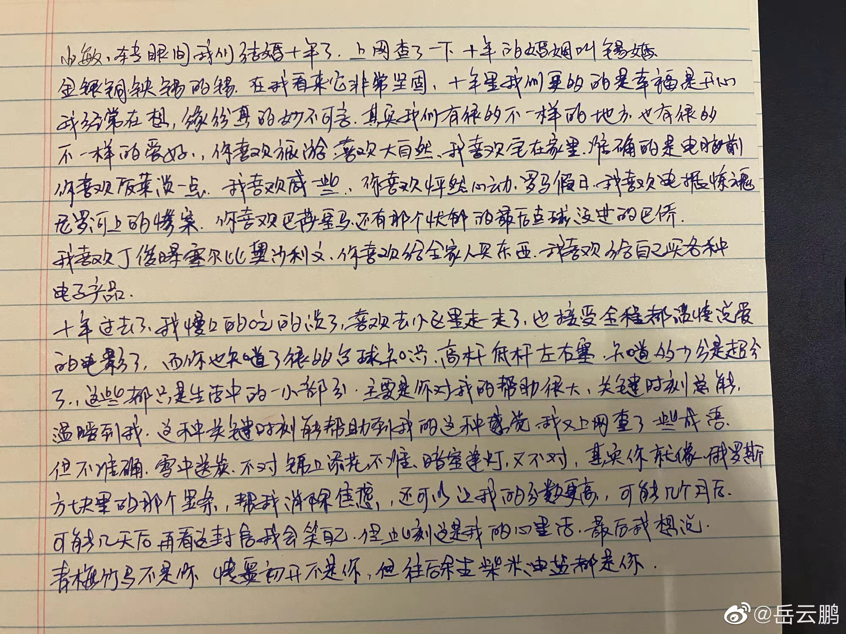 小敏，转眼间我们结婚十年了．上网查了一下 十年的婚姻叫锡婚
金银铜铁锡的锡．在我看来它非常坚固，十年里我们更多的是幸福是开心
我经常在想，缘分真的妙不可言．其实我们有很多不一样的地方 也有很多
不一样的爱好，你喜欢旅游 喜欢大自然．我喜欢宅在家里．准确的是电脑前
你喜欢饭菜淡一点．我喜欢咸一些．你喜欢怦然心动．罗马假日．我喜欢电锯惊魂
尼罗河上的惨案．你喜欢巴萨皇马．还有那个忧郁的最后点球没进的巴乔．
我喜欢丁俊晖塞尔比奥沙利文．你喜欢给全家人买东西．我喜欢给自己买各种
电子产品．
十年过去了．我慢慢的吃的淡了，喜欢去小区里走一走了，也接受全程都谈情说爱
的电影了，而你也知道了很多台球知识．高杆低杆左右塞．知道147分是超分
了，这些都只是生活中的一小部分．主要是你对我的帮助很大，关键时刻总能
温暖到我．这种关键时刻能帮助到我的这种感觉．我又上网查了些成语
但不准确．雪中送炭．不对 锦上添花不准．暗室逢灯，又不对，其实你就像俄罗斯
方块里的那个竖条，帮我消除焦虑，还可以让我的分数更高，可能几个月后．
可能几天后 再看这封信我会笑自己．但此刻这是我的心里话．最后我想说．
青梅竹马不是你 情窦初开不是你，但往后余生柴米油盐都是你．
@岳云鹏